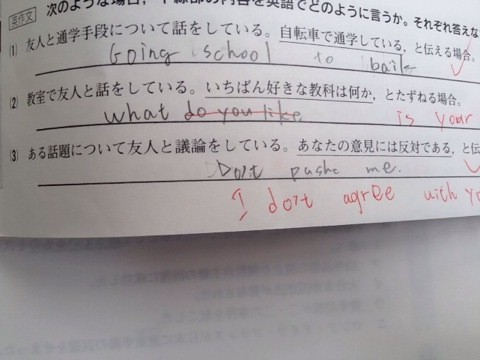 英作文 次のような場合, 下線部の内容を英語でどのように言うか。それぞれ答えな
(1) 友人と通学手段について話をしている。自転車で通学している, と伝える場合。
Going school to baik
(2) 教室で友人と話をしている。いちばん好きな教科は何か, とたずねる場合。
what do you like is your
(3) ある話題について友人と議論をしている。あなたの意見には反対である, と伝
Do't pushe me.
I do't agree with yo